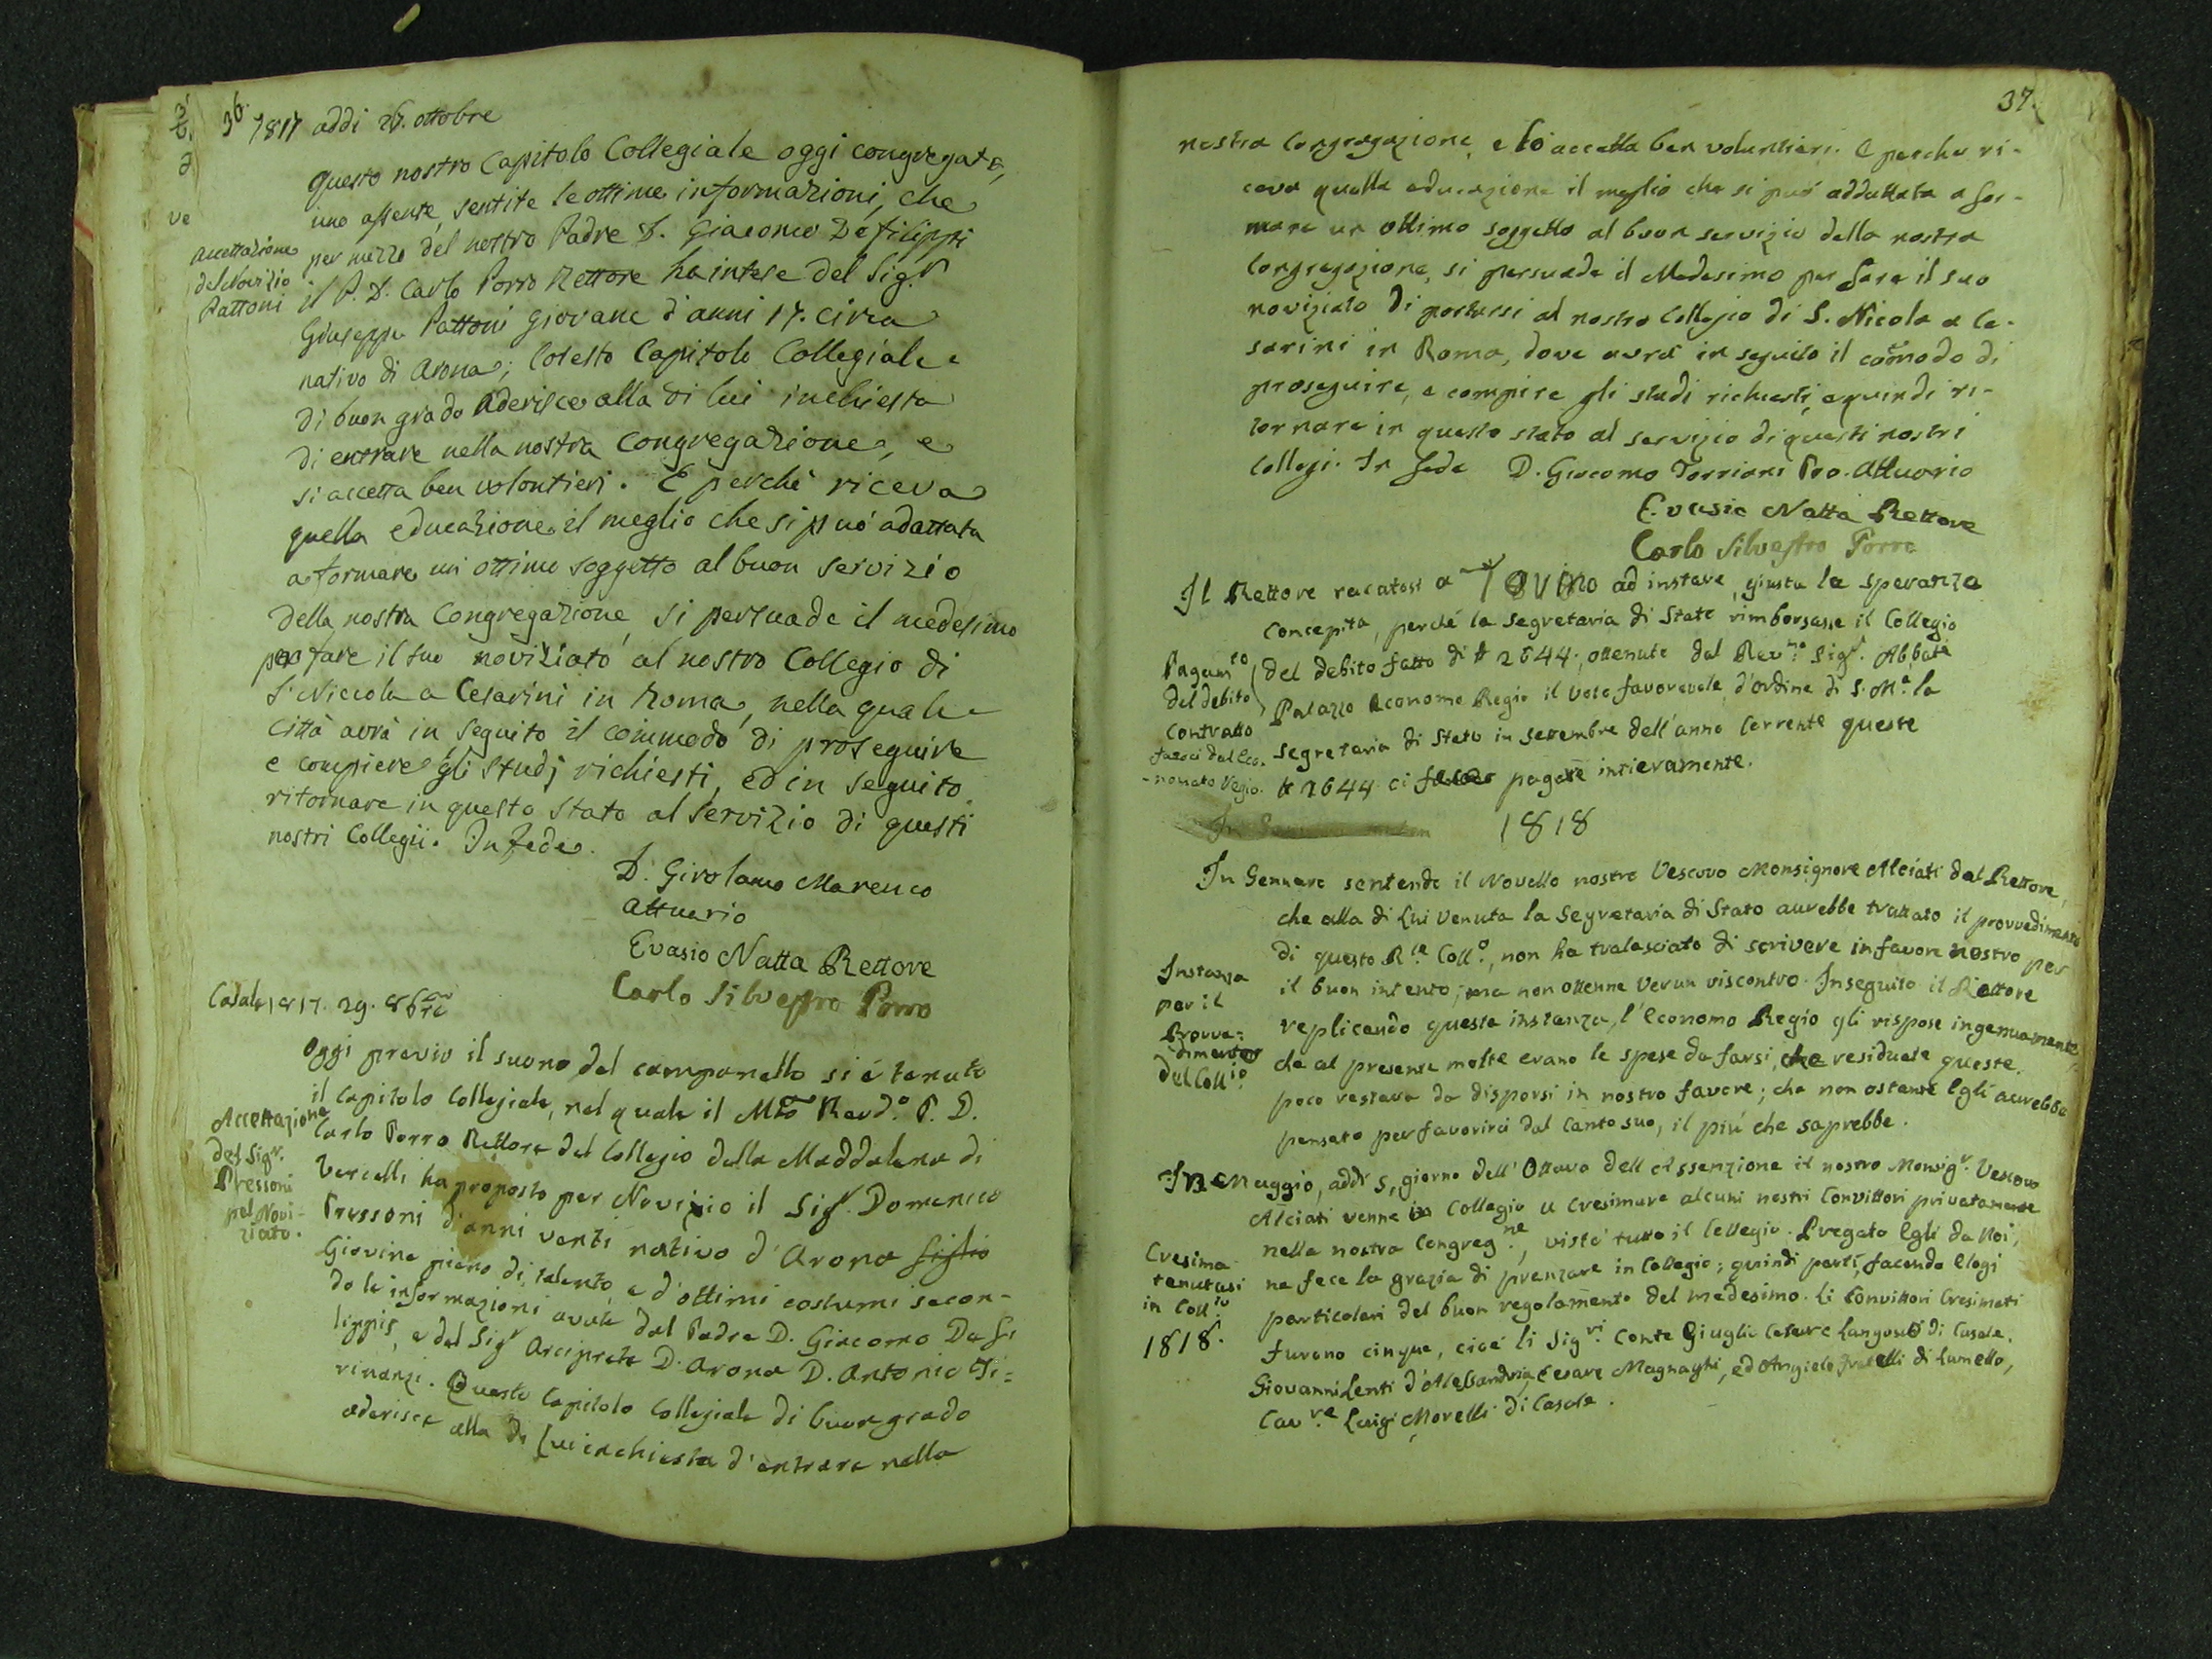 36.
1817 addi 26. ottobre
questo nostro Capitolo Collegiale oggi congregato,
uno assente, sentite le ottime informazioni, che
per mezzo del nostro Padre D. Giacomo Defilippi
il P. D. Carlo Porro Rettore ha intese del Sig.r
Giuseppe Pattoni giovane d'anni 17. circa
nativo di Arona; Cotesto Capitolo Collegiale
di buon grado aderisce alla di lui inchiesta
di entrare nella nostra Congregazione, e
si accetta ben volontieri. E perchè riceva
quella educazione il meglio che si può adattata
a formare un ottimo soggetto al buon servizio
della nostra Congregazione, si persuade il medesimo
per fare il suo noviziato al nostro Collegio di
S. Niccola a Cesarini in Roma, nella quale
Città avrà in seguito il commodo di proseguire
e compiere gli studj richiesti, ed in seguito
ritornare in questo stato al servizio di questi
nostri Collegii. In fede.
accettazione
del Novizio
Pattoni
D. Girolamo Marenco
attuario
Evasio Natta Rettore
Carlo Silvestro Porro
Casale 1817. 29. 8bre
Oggi previo il suono del campanello si è tenuto
il Capitolo Collegiale, nel quale il Mto Revd.o P. D.
Carlo Porro Rettore del Collegio della Maddalena di
Vercelli ha proposto per Novizio il Sig.r Domenico
Pressoni d'anni venti nativo d'Arona figlio
Giovine pieno di talento, e d'ottimi costumi secon-
do le informazioni avute dal Padre D. Giacomo De fi
lippis, e dal Sig.r Arciprete D'Arona D. Antonio Ti=
rinanzi. Questo Capitolo Collegiale di buon grado
aderisce alla di Lui inchiesta d'entrare nella
Accettazione
del Sigr.
Pressoni
pel Novi-
ziato.
37.
nostra Congregazione, e lo accetta ben voluntieri. E perche ri-
ceva quella educazione il meglio che si può addattata a for-
mare un ottimo soggetto al buon servizio della nostra
Congregazione, si persuade il Medesimo per fare il suo
noviziato di portarsi al nostro Collegio di S. Nicola a Ce-
sarini in Roma, dove avrà in seguito il comodo di
proseguire, e compire gli studi richiesti, e quindi ri-
tornare in questo stato al servizio di questi nostri
Collegi. In fede D. Giacomo Torriani Pro. Attuario
Evasio Natta Rettore
Carlo Silvestro Porro
Il Rettore recatosi a Torino ad instare, giusta la speranza
concepita, perché la Segretaria di Stato rimborsasse il Collegio
del debito fatto di # 2644., ottenuto dal Rev.mo Sigr. Abbate
Palazzo Economo Regio il voto favorevole, d'ordine di S. M.a la
Segretaria di Stato in settembre dell'anno Corrente queste
# 2644 ci fece pagare intieramente.
Pagam.to
del debito
contratto
fattoci dal Eco.
nomato Regio.
1818
In Gennaro sentendo il Novello nostro Vescovo Monsignore Alciati dal Rettore,
che alla di Lui Venuta la Segretaria di Stato aurebbe trattato il provvedimento
di questo R.le Coll.o, non ha tralasciato di scrivere in favore nostro per
il buon intento; ma non ottenne verun riscontro. Inseguito il Rettore
replicando questa instanza, l'Economo Regio gli rispose ingenuamente,
che al presente molte erano le spese da farsi, che residuate queste
poco restava da disporsi in nostro favore; che non ostante Egli aurebbe
pensato per favorirci dal Canto suo, il più che saprebbe.
Instanza
per il
Provve=
dimento
del Coll.io
In Maggio, addi 5, giorno dell'Ottava dell'Assenzione il nostro Monsigr. Vescovo
Alciati venne in Collegio a Cresimare alcuni nostri Convittori privatamente
nella nostra Congreg.ne, visitò tutto il Collegio. Pregato Egli da Noi,
ne fece la grazia di pranzare in Collegio; quindi partì, facendo Elogi
particolari del buon regolamento del medesimo. Li Convittori Cresimati
furono cinque, cioè li Sig.ri Conte Giuglio Cesare Langosco di Casale,
Giovanni Lenti d'Alessandria, Cesare Magnaghi, ed Angielo fratelli di Lumello,
Cav.re Luigi Morelli di Casale.
Cresima
tenutasi
in Coll.io
1818.